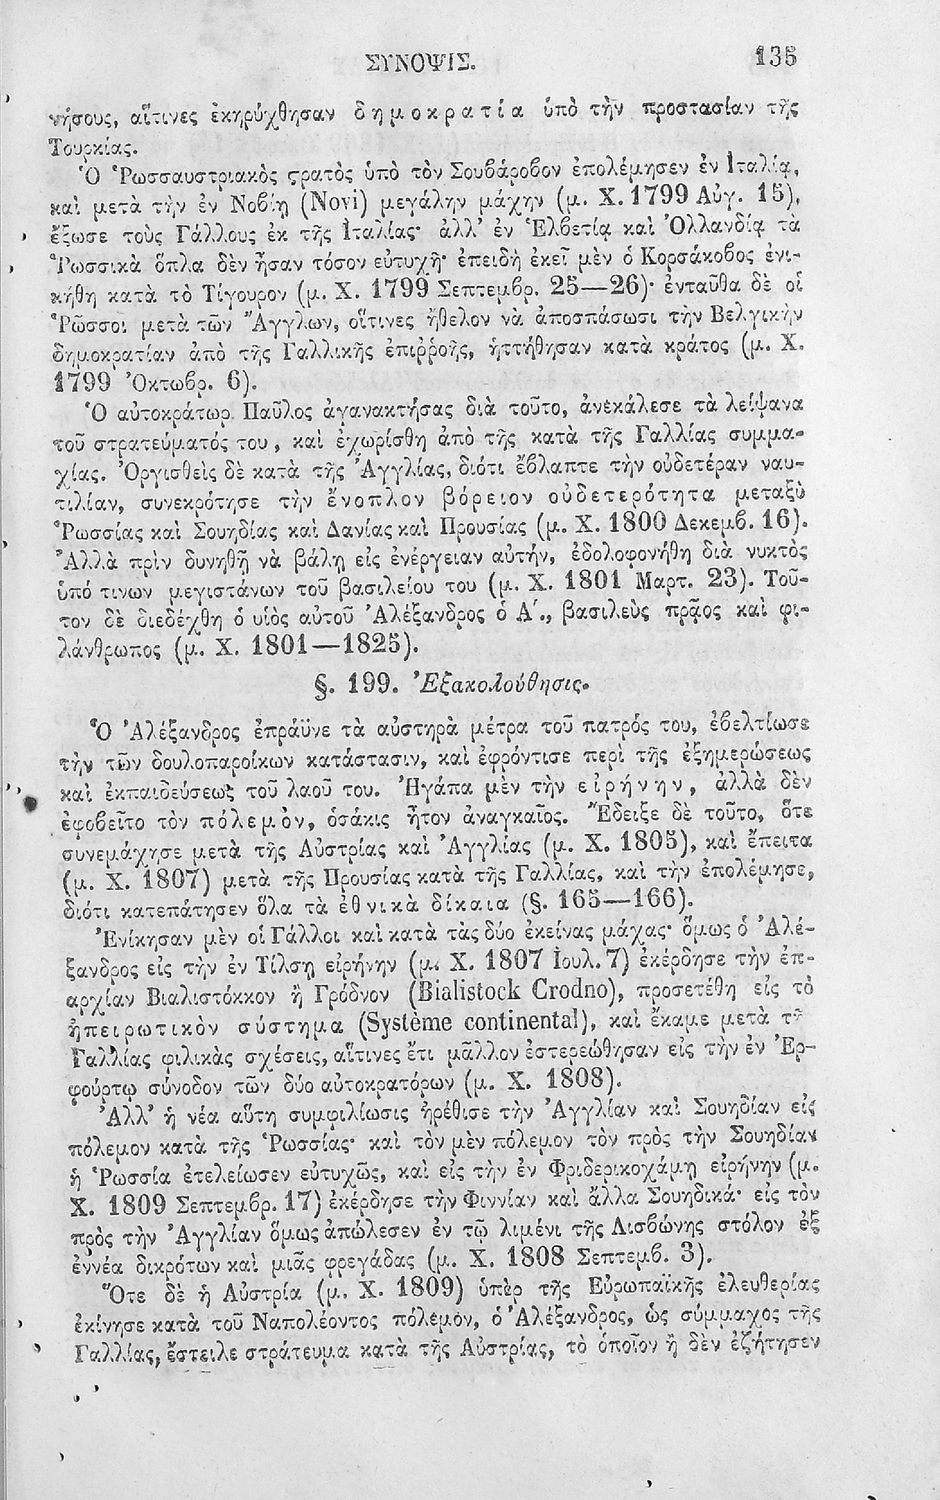 ΣΥΝΟΨΙΣ. 135
νήσους, αἵτινες ἐκηρύχθησαν δημοκρατία ὑπὸ τὴν προστασίαν τῆς
Τουρκίας.
Ὁ Ῥωσσαυστριακὸς ςρατὸς ὑπὸ τὸν Σουβάροβον ἐπολέμησεν ἐν Ἰταλίᾳ,
καὶ μετὰ τὴν ἐν Νοβίῃ (Novi) μεγάλην μάχην (μ. Χ. 1799 Αὐγ. 15),
ἔξωσε τοὺς Γάλλους ἐκ τῆς Ἰταλίας· ἀλλ' ἐν Ἑλβετίᾳ καὶ Ὁλλανδίᾳ τὰ
Ῥωσσικὰ ὅπλα δὲν ἦσαν τόσον εὐτυχῆ· ἐπειδὴ ἐκεῖ μὲν ὁ Κορσάκοβος ἐνι-
κήθη κατὰ τὸ Τίγουρον (μ. Χ. 1799 Σεπτεμβρ. 25—26)· ἐνταῦθα δὲ οἱ
Ῥῶσσοι μετὰ τῶν Ἄγγλων, οἵτινες ἤθελον νὰ ἀποσπάσωσι τὴν Βελγικὴν
δημοκρατίαν ἀπὸ τῆς Γαλλικῆς ἐπιῤῥοῆς, ἡττήθησαν κατὰ κράτος (μ. Χ.
1799 Ὀκτωβρ. 6).
Ὁ αὐτοκράτωρ Παῦλος ἀγανακτήσας διὰ τοῦτο, ἀνεκάλεσε τὰ λείψανα
τοῦ στρατεύματός του, καὶ ἐχωρίσθη ἀπὸ τῆς κατὰ τῆς Γαλλίας συμμα-
χίας. Ὀργισθεὶς δὲ κατὰ τῆς Ἀγγλίας, διότι ἔβλαπτε τὴν οὐδετέραν ναυ-
τιλίαν, συνεκρότησε τὴν ἔνοπλον βόρειον οὐδετερότητα μεταξὺ
Ῥωσσίας καὶ Σουηδίας καὶ Δανίας καὶ Προυσίας (μ. Χ. 1800 Δεκεμβ. 16).
Ἀλλὰ πρὶν δυνηθῇ νὰ βάλῃ εἰς ἐνέργειαν αὐτήν, ἐδολοφονήθη διὰ νυκτὸς
ὑπό τινων μεγιστάνων τοῦ βασιλείου του (μ. Χ. 1801 Μαρτ. 23). Τοῦ-
τον δὲ διεδέχθη ὁ υἱὸς αὐτοῦ Ἀλέξανδρος ὁ Α΄., βασιλεὺς πρᾷος καὶ φι-
λάνθρωπος (μ. Χ. 1801—1825).
§. 199. Ἐξακολούθησις.
Ὁ Ἀλέξανδρος ἐπράϋνε τὰ αὐστηρὰ μέτρα τοῦ πατρός του, ἐβελτίωσε
τὴν τῶν δουλοπαροίκων κατάστασιν, καὶ ἐφρόντισε περὶ τῆς ἐξημερώσεως
καὶ ἐκπαιδεύσεως τοῦ λαοῦ του. Ἠγάπα μὲν τὴν εἰρήνην, ἀλλὰ δὲν
ἐφοβεῖτο τὸν πόλεμον, ὁσάκις ἦτον ἀναγκαῖος. Ἔδειξε δὲ τοῦτο, ὅτε
συνεμάχησε μετὰ τῆς Αὐστρίας καὶ Ἀγγλίας (μ. Χ. 1805), καὶ ἔπειτα
(μ. Χ. 1807) μετὰ τῆς Προυσίας κατὰ τῆς Γαλλίας, καὶ τὴν ἐπολέμησε,
διότι κατεπάτησεν ὅλα τὰ ἐθνικὰ δίκαια (§. 165—166).
Ἐνίκησαν μὲν οἱ Γάλλοι καὶ κατὰ τὰς δύο ἐκείνας μάχας· ὅμως ὁ Ἀλέ-
ξανδρος εἰς τὴν ἐν Τίλσῃ εἰρήνην (μ. Χ. 1807 Ἰουλ. 7) ἐκέρδησε τὴν ἐπ-
αρχίαν Βιαλιστόκκον ἢ Γρόδνον (Bialistock Crodno), προσετέθη εἰς τὸ
ἠπειρωτικὸν σύστημα (Système continental), καὶ ἔκαμε μετὰ τῆς
Γαλλίας φιλικὰς σχέσεις, αἵτινες ἔτι μᾶλλον ἐστερεώθησαν εἰς τὴν ἐν Ἐρ-
φούρτῳ σύνοδον τῶν δύο αὐτοκρατόρων (μ. Χ. 1808).
Ἀλλ' ἡ νέα αὕτη συμφιλίωσις ἠρέθισε τὴν Ἀγγλίαν καὶ Σουηδίαν εἰς
πόλεμον κατὰ τῆς Ῥωσσίας· καὶ τὸν μὲν πόλεμον τὸν πρὸς τὴν Σουηδίαν
ἡ Ῥωσσία ἐτελείωσεν εὐτυχῶς, καὶ εἰς τὴν ἐν Φριδερικοχάμῃ εἰρήνην (μ.
Χ. 1809 Σεπτεμβρ. 17) ἐκέρδησε τὴν Φιννίαν καὶ ἄλλα Σουηδικά· εἰς τὸν
πρὸς τὴν Ἀγγλίαν ὅμως ἀπώλεσεν ἐν τῷ λιμένι τῆς Λισβώνης στόλον ἐξ
ἐννέα δικρότων καὶ μιᾶς φρεγάδας (μ. Χ. 1808 Σεπτεμβ. 3).
Ὅτε δὲ ἡ Αὐστρία (μ. Χ. 1809) ὑπὲρ τῆς Εὐρωπαϊκῆς ἐλευθερίας
ἐκίνησε κατὰ τοῦ Ναπολέοντος πόλεμον, ὁ Ἀλέξανδρος, ὡς σύμμαχος τῆς
Γαλλίας, ἔστειλε στράτευμα κατὰ τῆς Αὐστρίας, τὸ ὁποῖον ἢ δὲν ἐζήτησεν